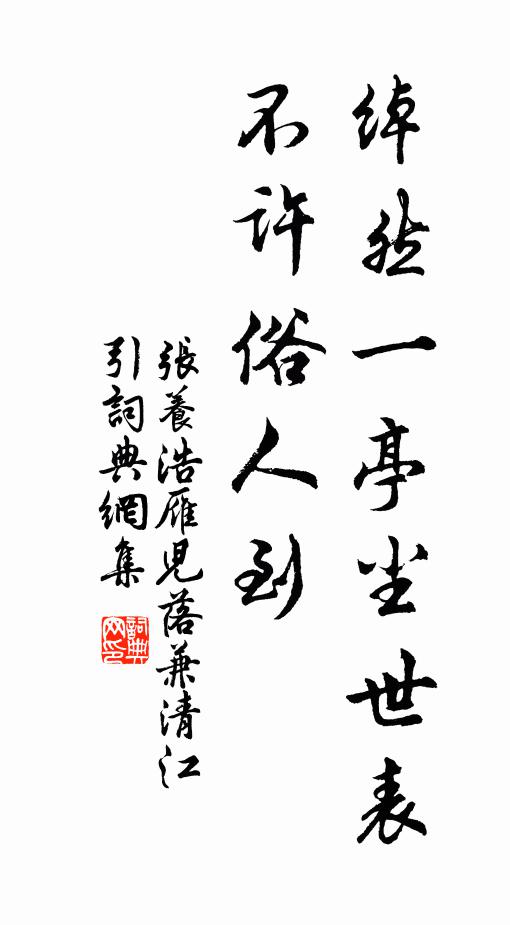 綽然一亭尘世表
不許俗人到
張養浩雁児落兼清江
引詞典網集
詞典网印